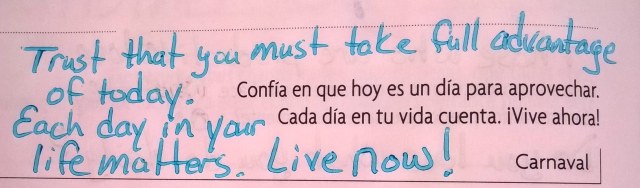 Trust that you must take full advantage
of today.
Confía en que hoy es un día para aprovechar.
Each day in your
Cada día en tu vida cuenta. ¡Vive ahora!
life matters. Live now!
Carnaval